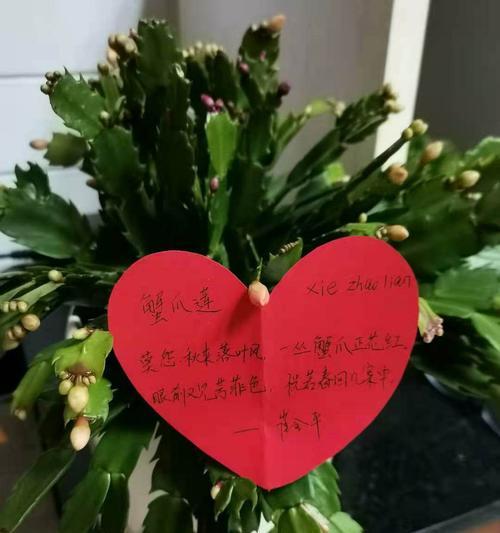 蟹爪莲 xie zhao lian
莫怨秋来落叶风，一丛蟹爪正花红。
眼前又见芳菲色，恍若春回几案中。
—— 平